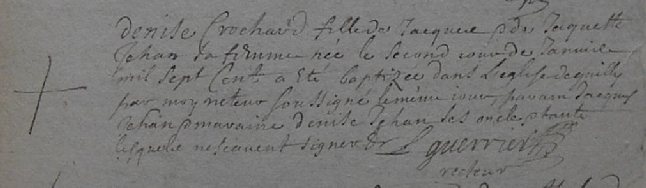 denise Crochard fille de Jacques & de Jaquette
Jehan sa femme née le second iour de Januier
mil sept Cent a eté baptizée dans L'eglise de
par moy recteur soussigné le méme iour parain Jacques
Jehan & maraine denise Jehan ses oncle & tante
lesquels ne scauent signer
L guerrier
recteur